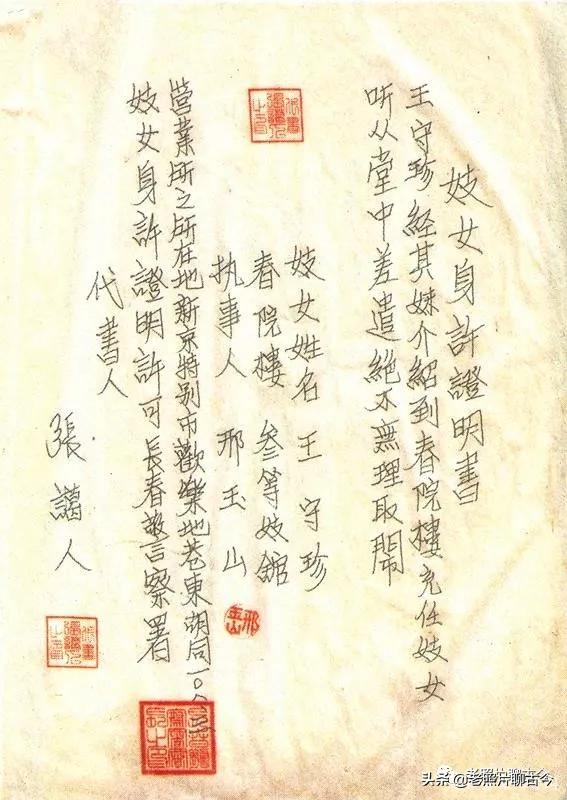 妓女身許證明書
王守珍經其妹介紹到春院樓充任妓女
听从堂中差遣絶不無理取鬧
妓女姓名 王守珍
春院樓 叅等妓舘
执事人 邢玉山
營業所之所在地新京特别市歡樂地巷東胡同一〇
妓女身許證明許可長春警察署
代書人
張謁人
头条@老照片聊古今